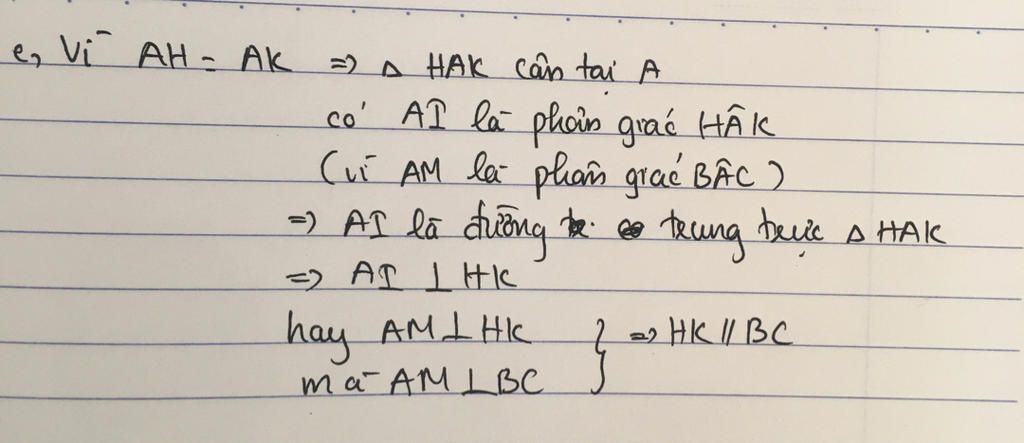 e, Vì AH = AK => Δ HAK cân tại A
có AI là phân giác HÂK
(vì AM là phân giác BÂC)
=> AI là đường trung trực Δ HAK
=> AI ⊥ HK
hay AM ⊥ HK } => HK // BC
mà AM ⊥ BC